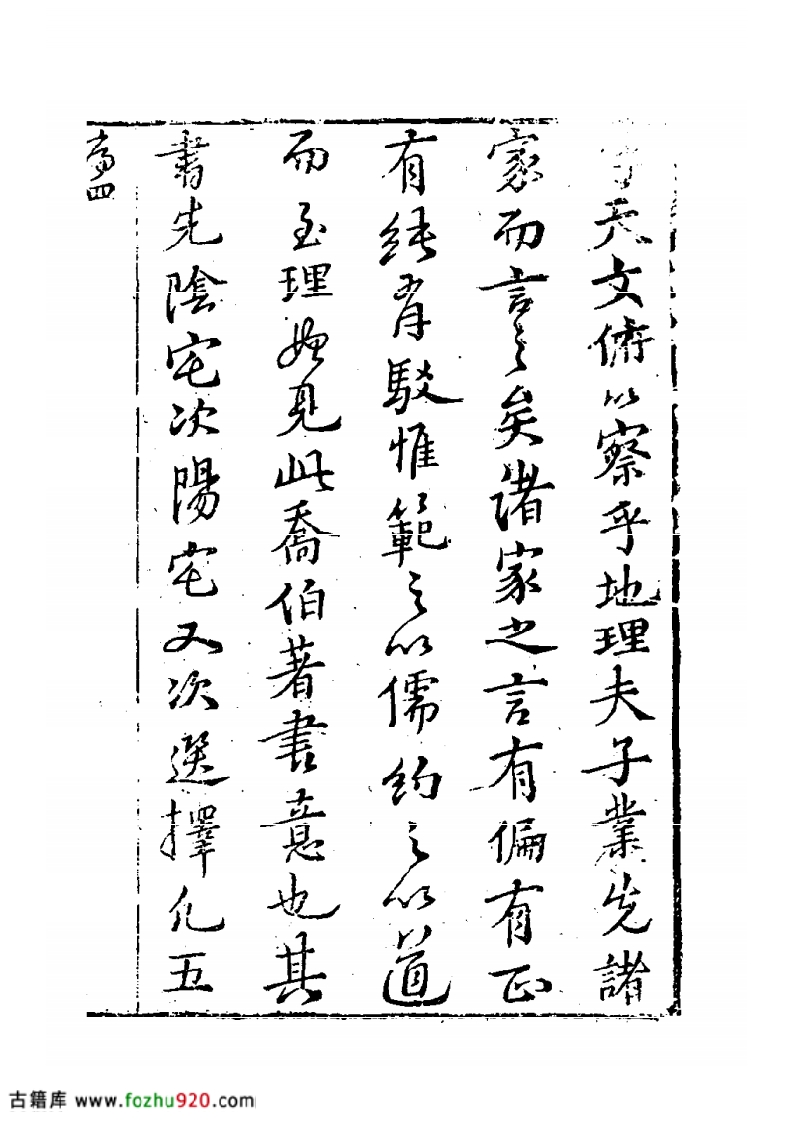 天文俯以察乎地理夫子業先諸
家而言之矣諸家之言有偏有正
有純有駁惟範之以儒約之以道
而至理始見此喬伯著書意也其
書先陰宅次陽宅又次選擇凡五
古籍库 www.fozhu920.com